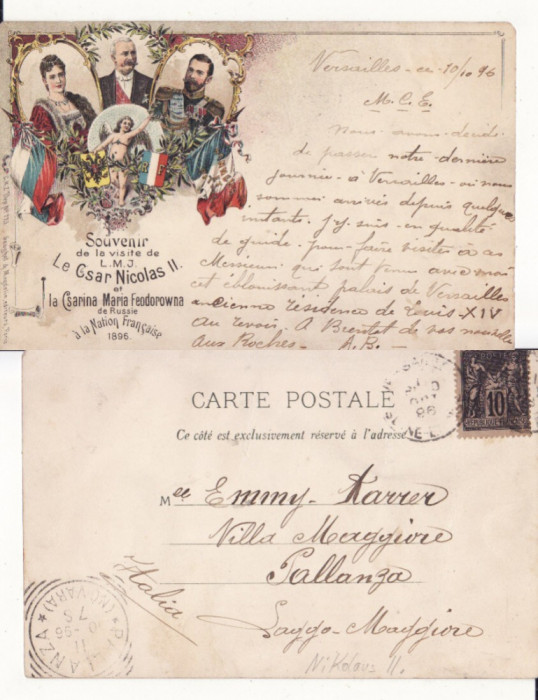 Versailles - ce 10/10 96
M. C. E.
Nous avons décidé
de passer notre dernière
journée à Versailles - où nous
sommes arrivés depuis quelques
instants. J'y suis en qualité
de guide pour faire visiter à
Messieurs qui sont venus avec moi
cet éblouissant palais de Versailles
ancienne résidence de Louis XIV
Au revoir. A Bientôt de vos nouvelles
aux Roches - A. B. -
Souvenir
de la visite de
L.M.J.
Le Csar Nicolas II.
et
la Csarina Maria Feodorowna
de Russie
à la Nation Française
1896.
CARTE POSTALE
Ce côté est exclusivement réservé à l'adresse.
10
REPUBLIQUE FRANÇAISE
Melle Emmy Karrer
Villa Maggiore
Pallanza
Laggo-Maggiore
Italia
(NOVARA)
Nikolaus II.